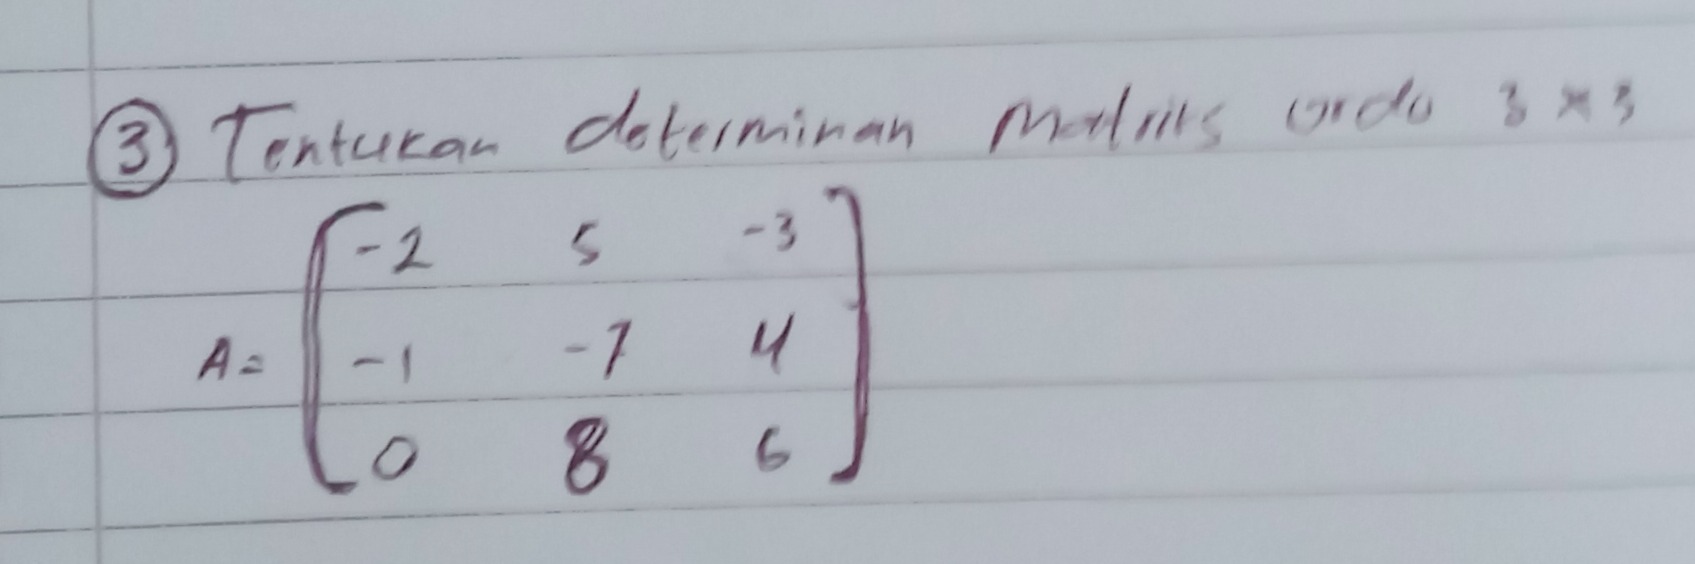 ③ Tentukan determinan Matriks ordo 3 × 3
-2 5 -3
A= -1 -7 4
0 8 6